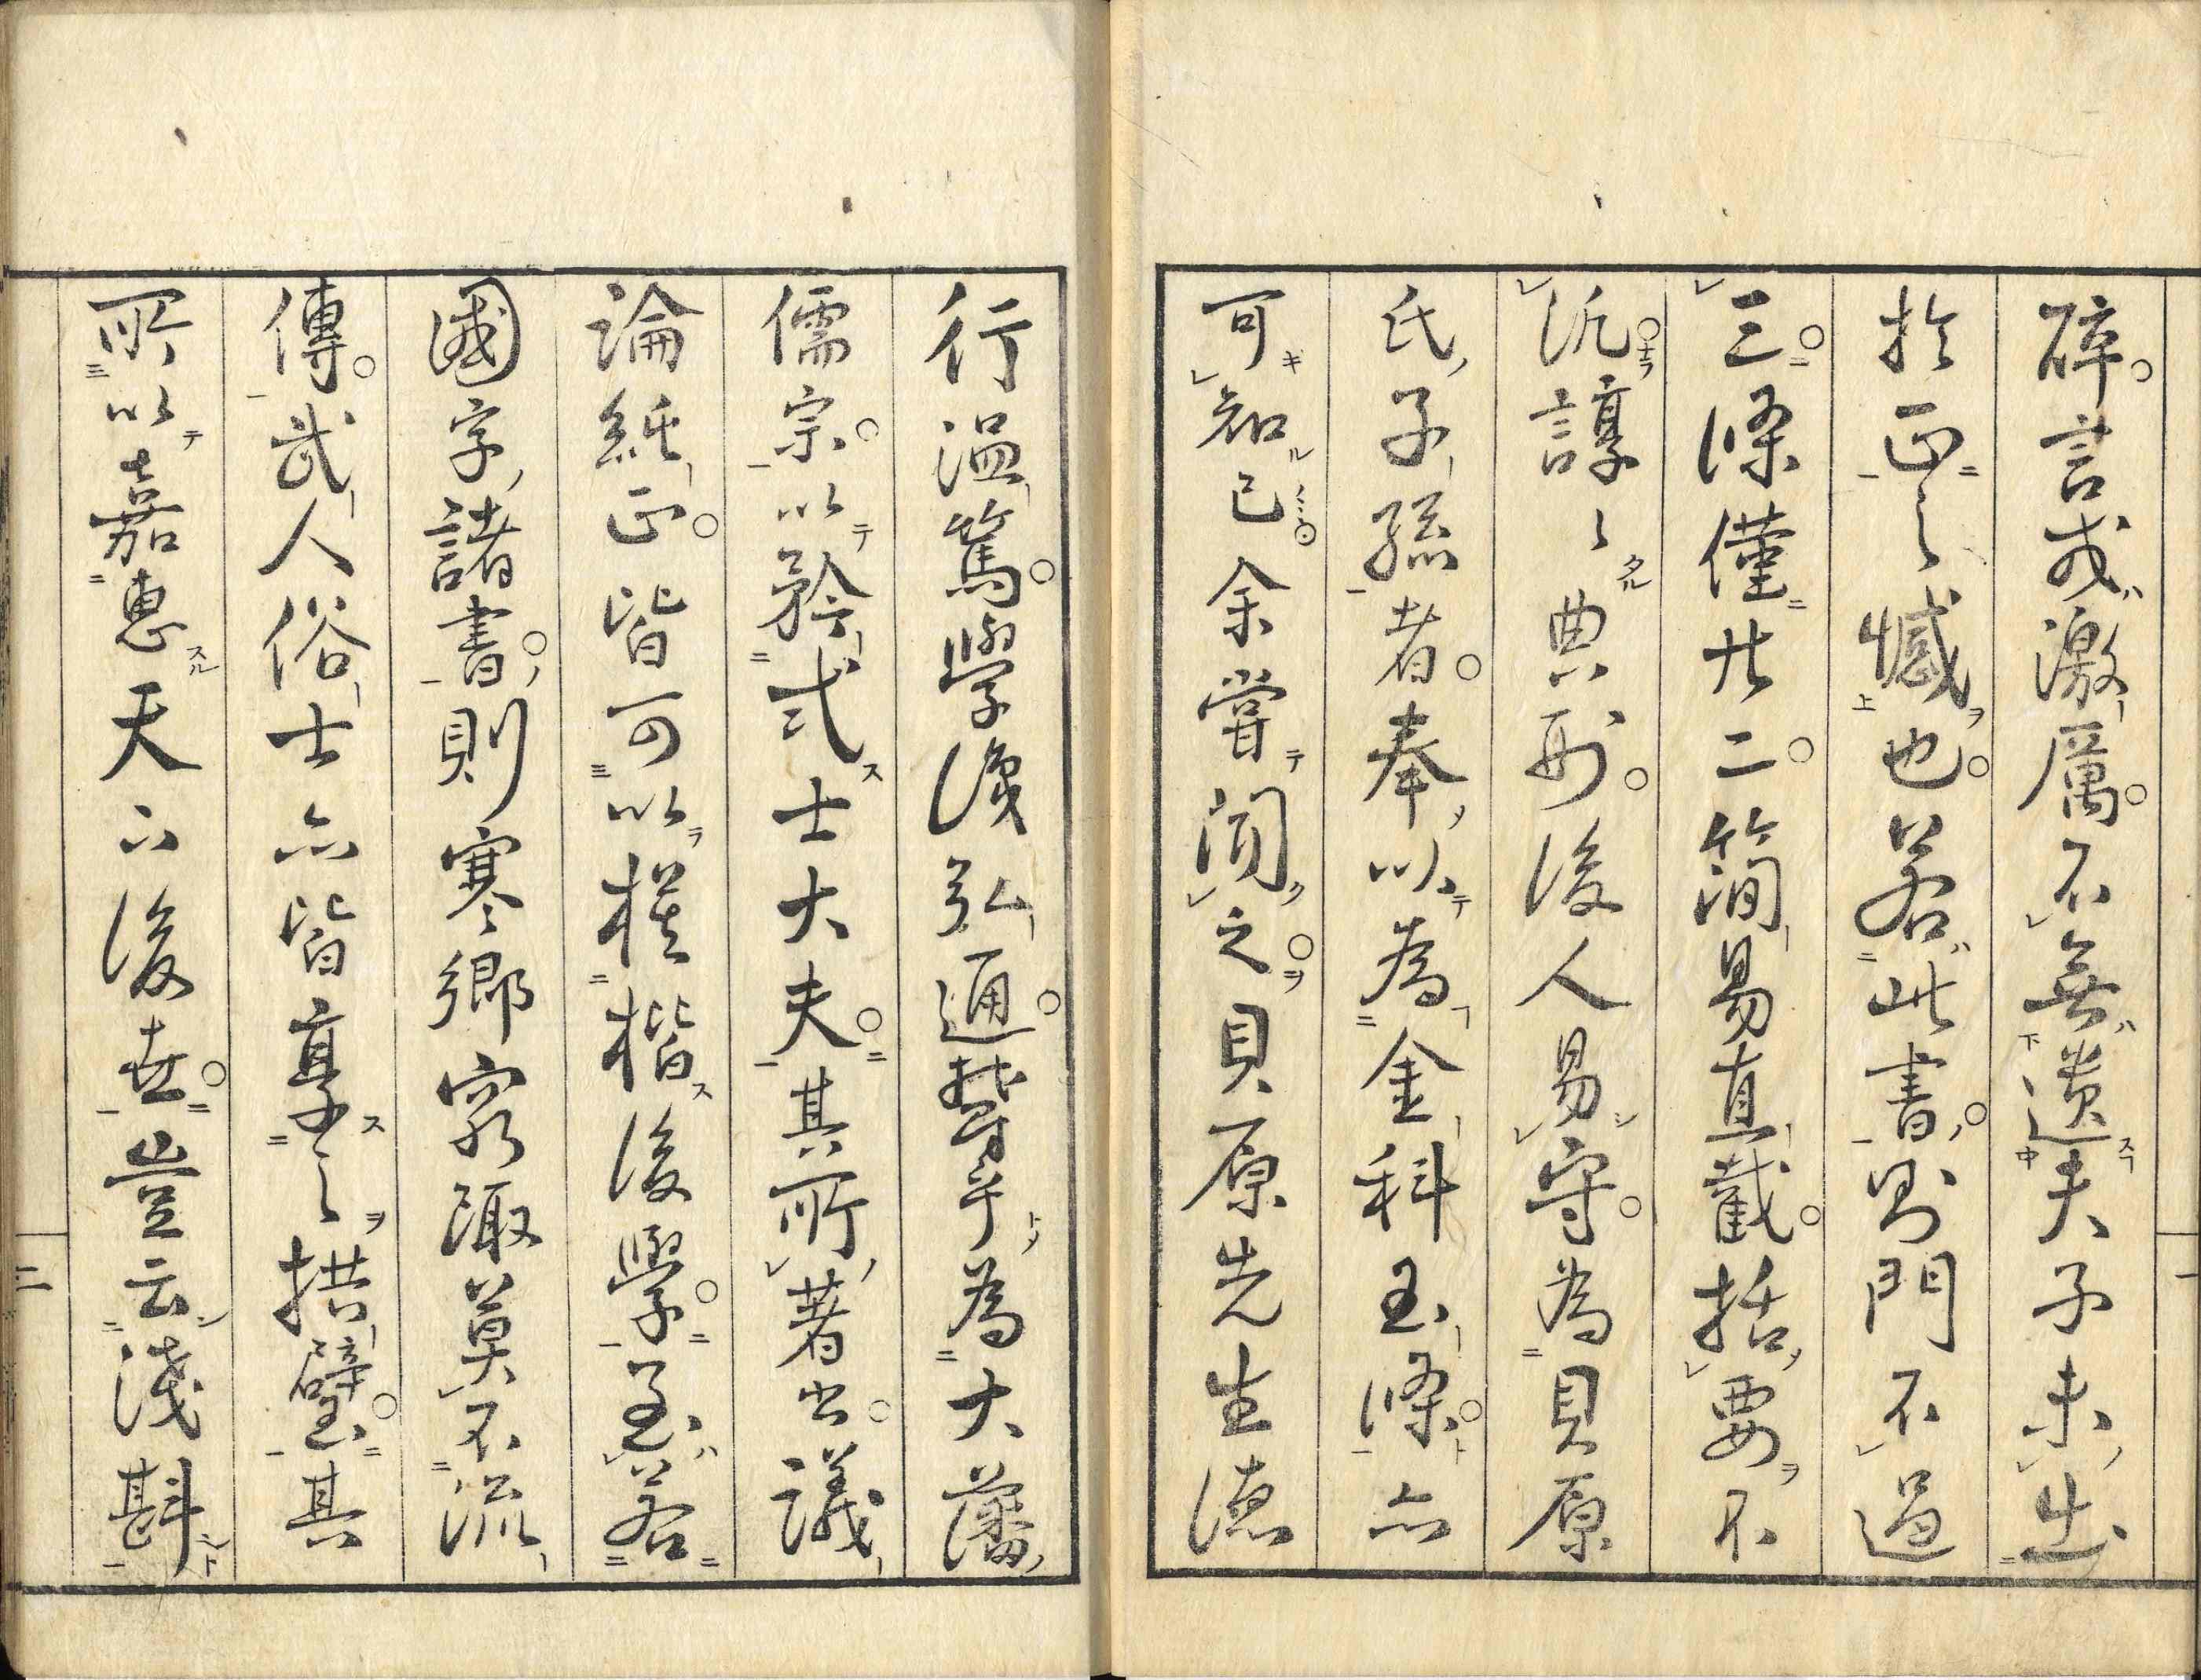 碎言或激厲不無遺夫子未出
於正之憾也若此書則門不過
三條僅廿二簡易直截括要不
汎諄々典刑後人易守為貝原
氏子孫者奉以為金科玉條亦
可知已余嘗聞之貝原先生德
行温篤學識弘通犖乎為大藩
儒宗以矜式士大夫其所著出議
論純正皆可以模楷後學至若
國字諸書則寒鄉窮陬莫不流
傳武人俗士亦皆享之拱璧其
所以嘉惠天下後世豈云淺斟
一
二